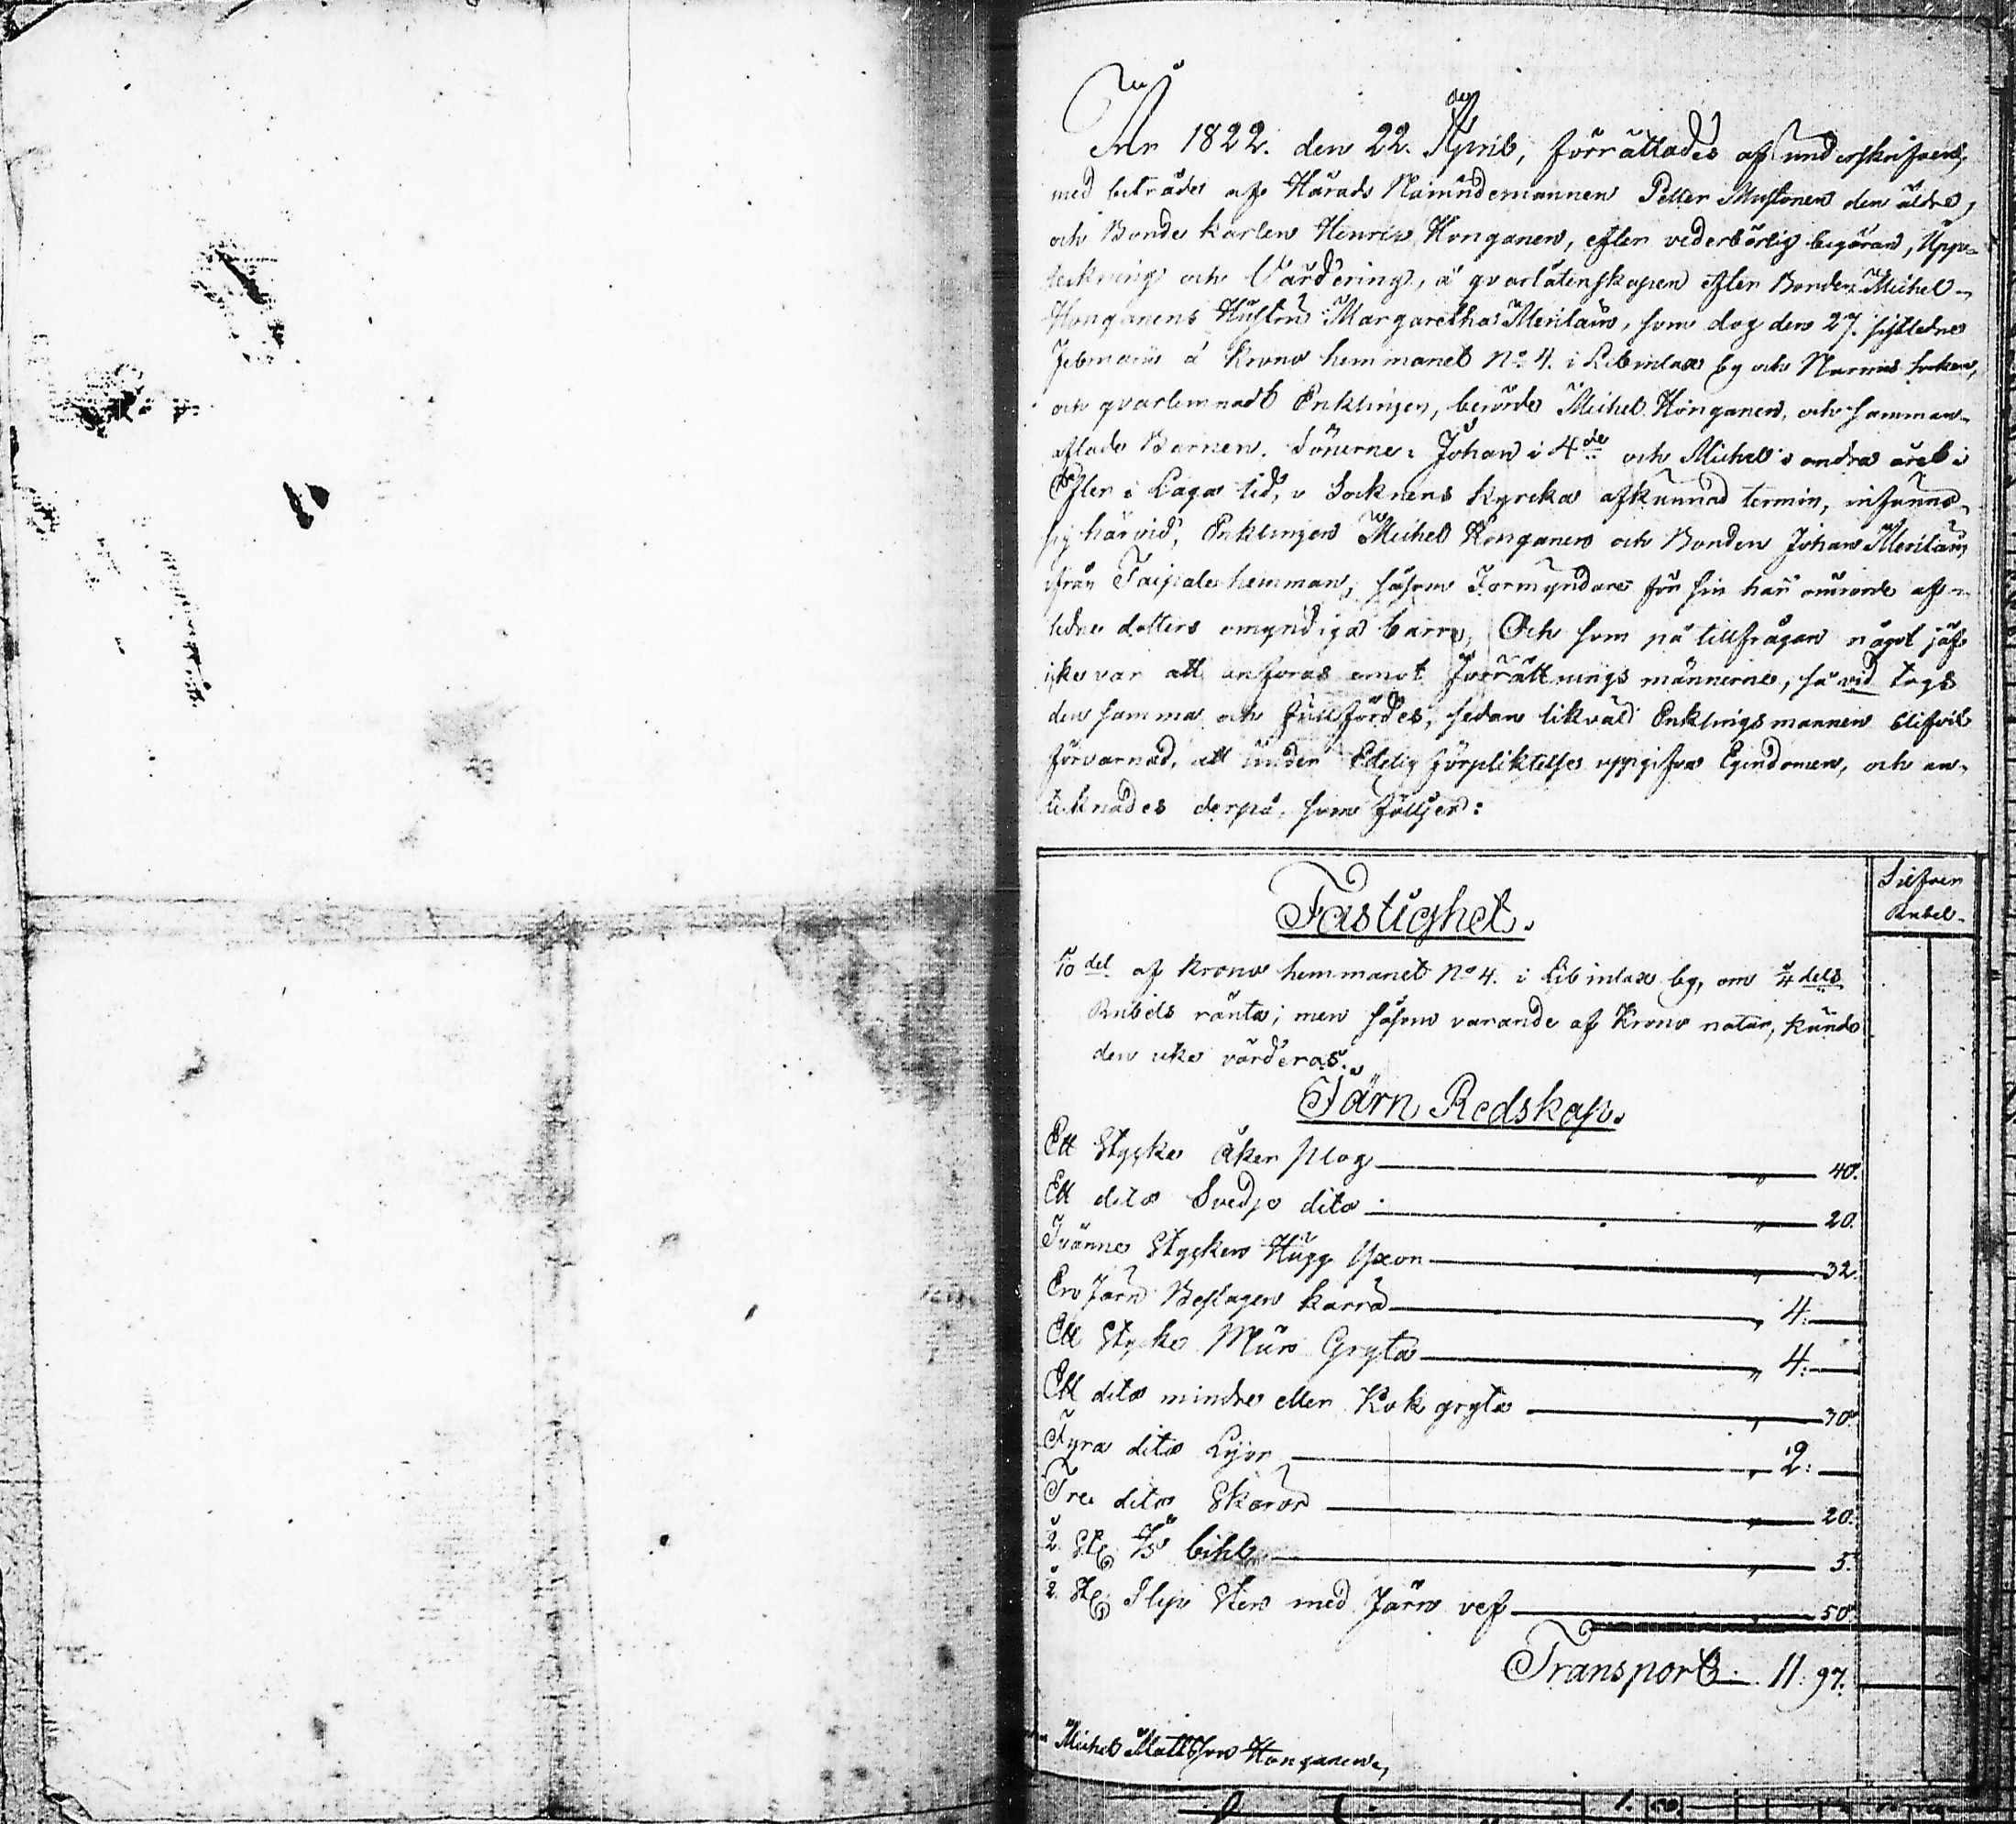 År 1822. den 22. April, förrättades af underskrifven,
med biträde af Härads Nämndemannen Petter Mustonen den äldre,
och Bonde karlen Henric Honganen, efter vederbörlig begäran, Uppe-
teckning och Värdering, å qvarlåtenskapen efter Bonden Michel
Honganens Hustru Margaretha Meriläin, som dog den 27. sistledne
Februarii å Krono hemmanet No 4. i Libinlax by och Nurmis socken,
och qvarlemnadt Enklingen, berörde Michel Honganen, och samman-
aflade Barnen. Sönerne: Johan i 4de och Michel i andra året
Efter i Laga tid, i Socknens kyrcka afkunnad termin, infunno
sig härvid, Enklingen Michel Honganen och Bonden Johan Meriläin
från Taipale hemman, såsom Formyndare för sin här omrörde af-
ledne dotters omyndiga barn, Och som på tillfrågan något jäf
icke var att anföras emot Förrättnings männerne, så vid togs
den samma och fullfördes, sedan likväl Enklingsmannen blifvit
förvarnad, att under Edelig förpliktelse uppgifva Egendomen, och an-
tecknades derpå, som följer:
Silfver
Rubel.
Fastighet.
del af Krono hemmanet No 4. i Libinlax by, om 3/4 dels
Rubels ränta; men såsom varande af Krono natur, kunde
den icke värderas.
Järn Redskap.
Ett Stycke åker plog — „ — 40.
Ett dito Svedjo dito — „ — 20.
Tvänne Stycken Hugg Yxor — „ — 32.
En Järn Beslagen karra — „ 4: —
Ett Stycke Mur Gryta — „ 4: —
Ett dito mindre eller Kok gryta — „ — 30.
Fyra dito Lijor — „ 2: —
Tre dito Skäror — „ — 20.
2. St. Is bihl — „ — 5.
2. St. Slip Sten med Järn vef — „ — 50.
Transport 11. 97.
Michel Mattsson Honganen,